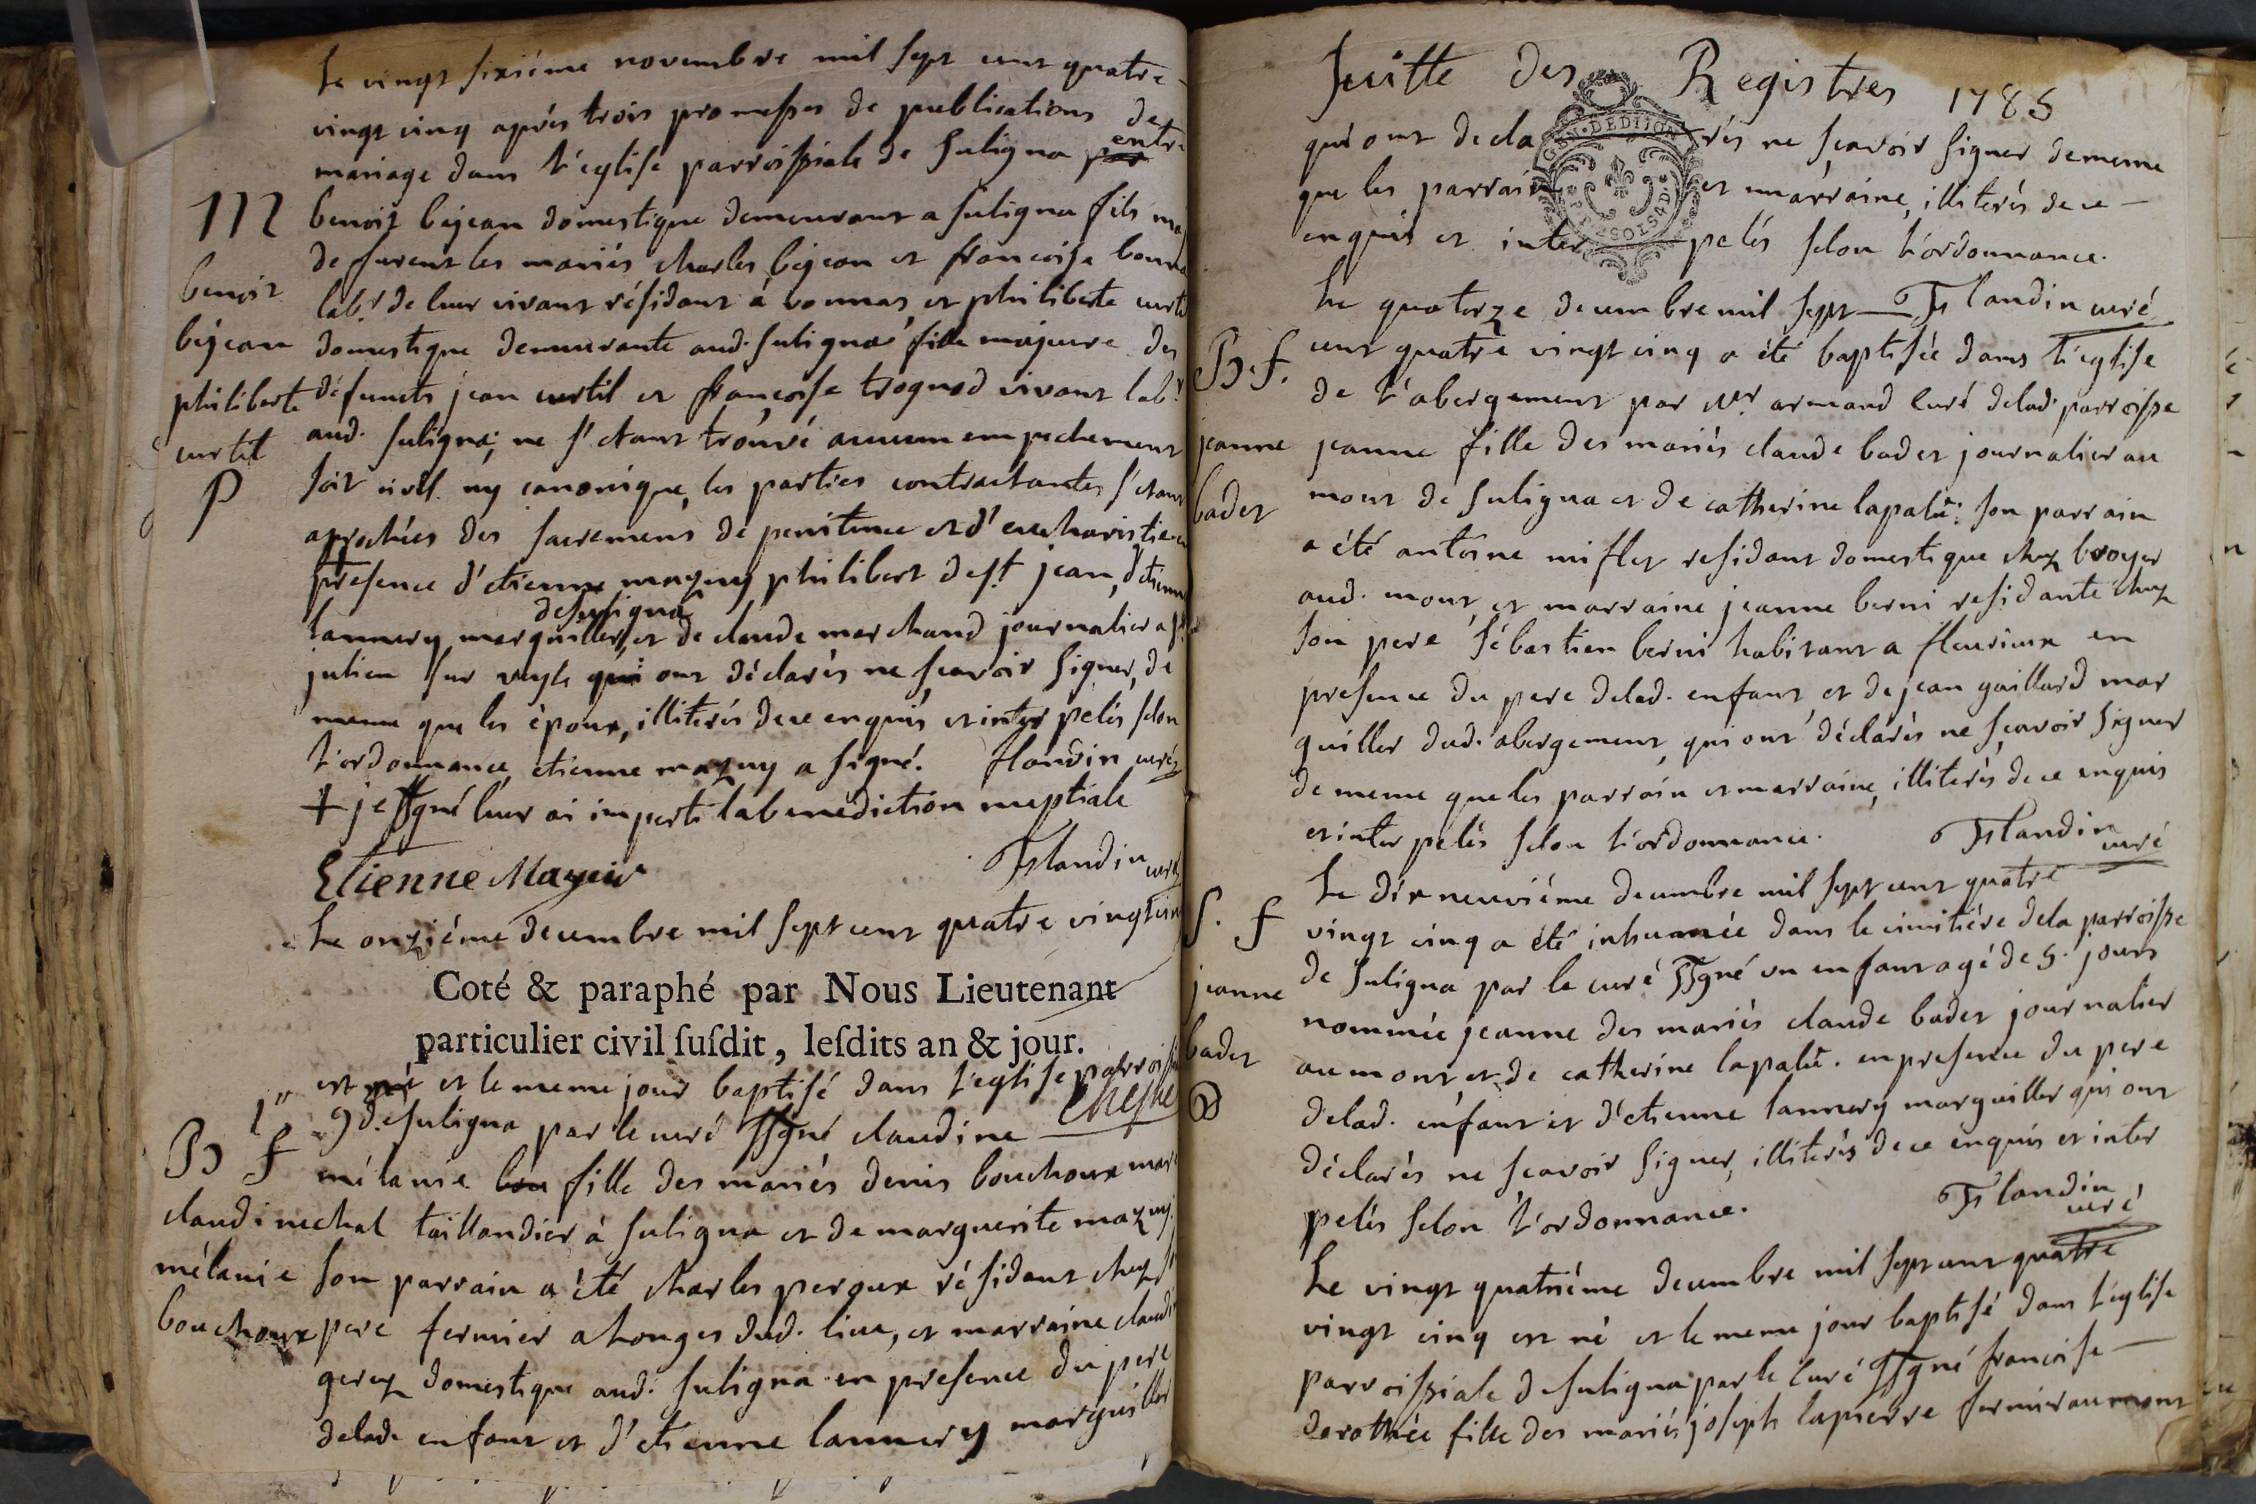 Le vingt sixiéme novembre mil sept cent quatre -
vingt cinq aprés trois promesses de publications de
mariage dans l'eglise parroissiale de suligna par entre
M benoit bejean domestique demeurant a suligna fils maj
de furent les mariés charles bejean et francoise bonn
benoit labr. de leur vivant résidant à vonnas, et philiberte curtil
béjean domestique demeurante aud. suligna fille majeure des
philiberte défunts jean curtil et francoise trognod vivant labr.
curtil aud. suligna; ne s'étant trouvé aucun empechement
P soit civil ny canonique, les parties contractantes s'étant
aprochées des sacremens de penitence et d'eucharistie en
presence d'etienne mazuy philibert dest jean, d'etienne
lannery marguiller de suligna, et de claude marchand journalier a st
julien sur veyle qui ont déclarés ne scavoir signer, de
meme que les époux, illiterés de ce enquis et interpelés selon
l'ordonnance, etienne mazuy a signé. flandin curé
+ je ssgné leur ai imparti la benediction nuptiale
Etienne Mayuir Flandin curé
Le onziéme decembre mil sept cent quatre vingt cinq
Coté & paraphé par Nous Lieutenant
particulier civil ſuſdit, leſdits an & jour.
est né et le meme jour baptisé dans l'eglise parroissi
de suligna par le curé ssgné claudine
B f mélanie bou fille des mariés denis bouchoux mare
claudine chal taillandier à suligna et de marguerite mazuy.
mélanie son parrain a été charles pergux résidant chez s
bouchoux pere fermier a longes dud. lieu, et marraine claudi
gerex domestique aud. suligna en presence du pere
delad. enfant et d'etienne lannery marguiller
Suitte des Registres 1785
qui ont declarés ne scavoir signer de meme
que les parrain et marraine, illiterés de ce -
enquis et interpelés selon l'ordonnance.
Le quatorze decembre mil sept Flandin curé
B. f. cent quatre vingt cinq a été baptisée dans l'eglise
de l'abergement par Mr. armand curé delad. parroisse
jeanne jeanne fille des mariés claude badet journalier au
badet mont de suligna et de catherine lapalū; son parrain
a été antoine miflet residant domestique chez broyer
aud. mont, et marraine jeanne berni residante chez
son pere sébastien berni habitant a fleurieux en
presence du pere delad. enfant, et de jean gaillard mar
guiller dud. abergement, qui ont déclarés ne scavoir signer
de meme que les parrain et marraine, illiterés de ce enquis
et interpelés selon l'ordonnance. Flandin curé
Le dix neuviéme decembre mil sept cent quatre
S. f vingt cinq a été inhumée dans le cimitiére de la parroisse
de suligna par le curé ssgné un enfant agé de 5. jours
jeanne nommée jeanne des mariés claude badet journalier
badet au mont et de catherine lapalū. en presence du pere
delad. enfant et d'etienne lannery marguiller qui ont
déclarés ne scavoir signer, illiterés de ce enquis et inter
pelés selon l'ordonnance. Flandin curé
Le vingt quatriéme decembre mil sept cent quatre
vingt cinq est né et le meme jour baptisé dans l'eglise
parroissiale de suligna par le curé ssgné francoise -
dorothée fille des mariés joseph lapierre fermier au mont